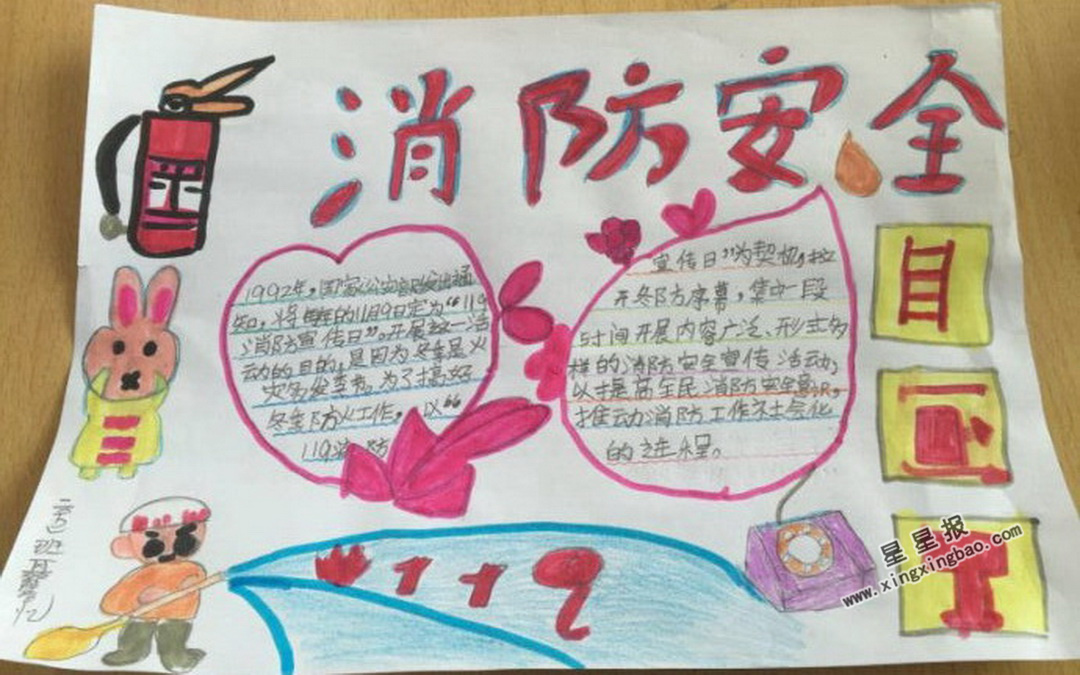 消防安全
1992年,国家公安部发出通
知,将每年的11月9日定为“119
消防宣传日”。开展这一活
动的目的,是因为冬季是火
灾多发季节。为了搞好
冬季防火工作, 以“
119消防
宣传日”为契机,拉
开冬防序幕,集中一段
时间开展内容广泛、形式多
样的消防安全宣传活动,
以提高全民消防安全意识,
推动消防工作社会化
的进程。
119
星星报
www.xingxingbao.com